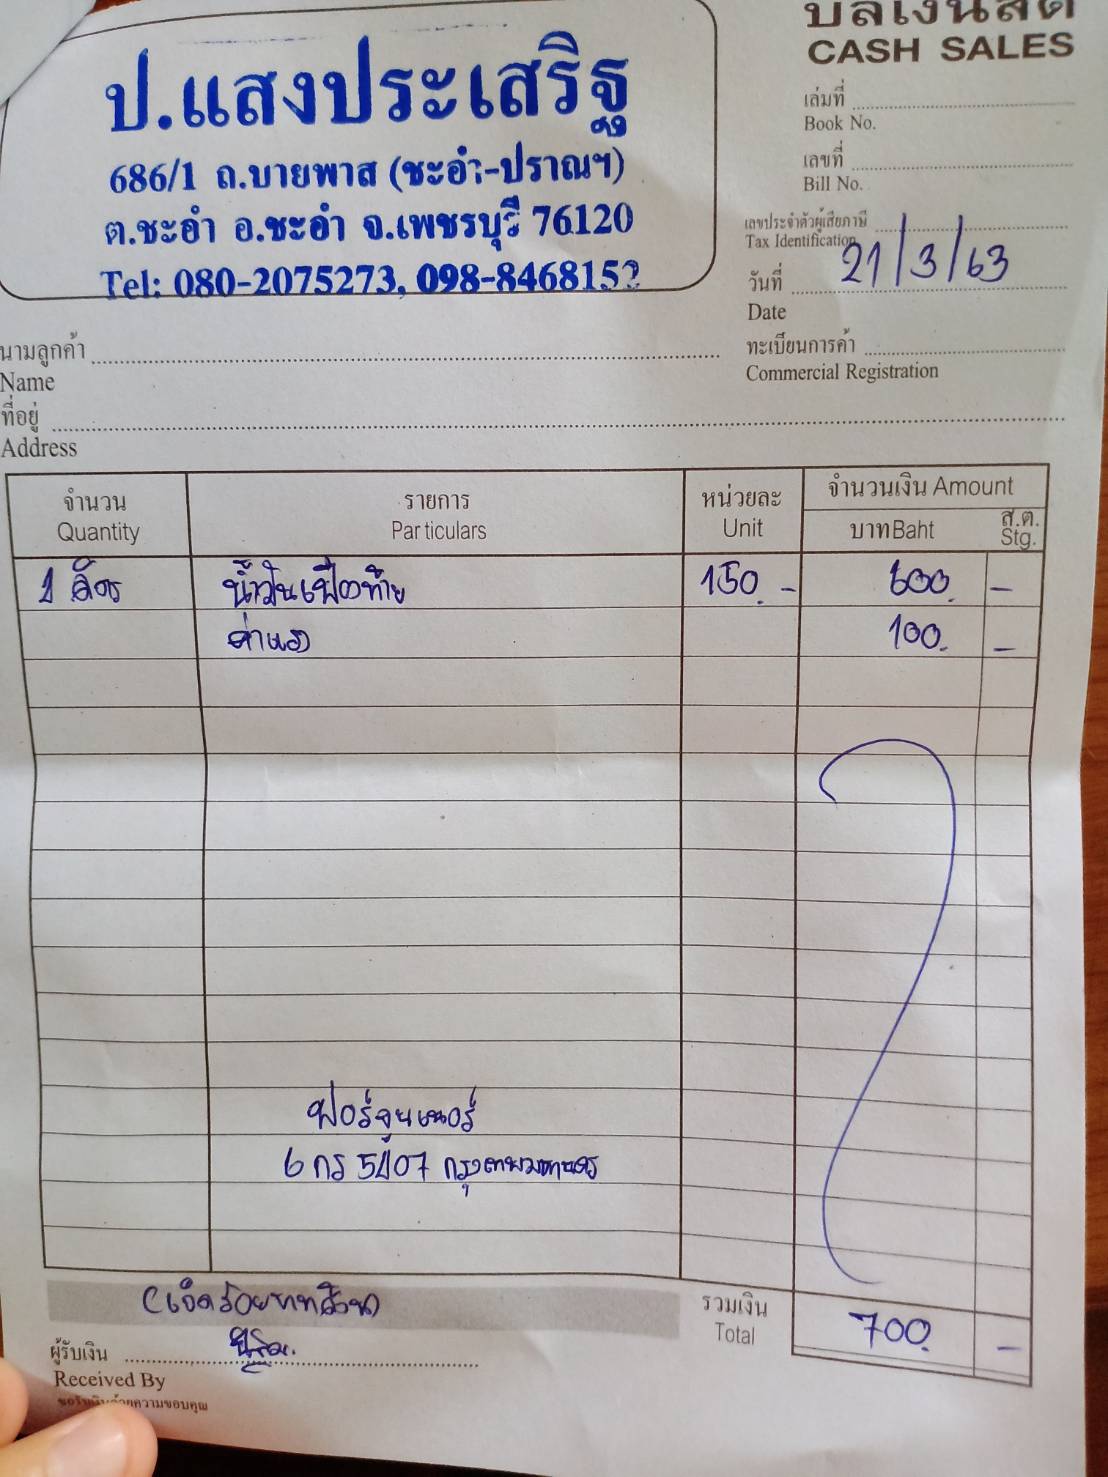 บิลเงินสด
CASH SALES
ป.แสงประเสริฐ
686/1 ถ.บายพาส (ชะอำ-ปราณฯ)
ต.ชะอำ อ.ชะอำ จ.เพชรบุรี 76120
Tel: 080-2075273, 098-8468152
เล่มที่
Book No.
เลขที่
Bill No.
เลขประจำตัวผู้เสียภาษี
Tax Identification
วันที่ 21/3/63
Date
นามลูกค้า
Name
ทะเบียนการค้า
Commercial Registration
ที่อยู่
Address
จำนวน รายการ หน่วยละ จำนวนเงิน Amount
Quantity Particulars Unit บาท Baht ส.ต. Stg.
1 ลิตร น้ำมันเฟืองท้าย 150.- 600. -
ค่าแรง 100. -
ฟอร์จูนเนอร์
6 กร 5407 กรุงเทพมหานคร
(เจ็ดร้อยบาทถ้วน)
รวมเงิน 700. -
Total
ผู้รับเงิน
Received By
ขอรับเงินด้วยความขอบคุณ